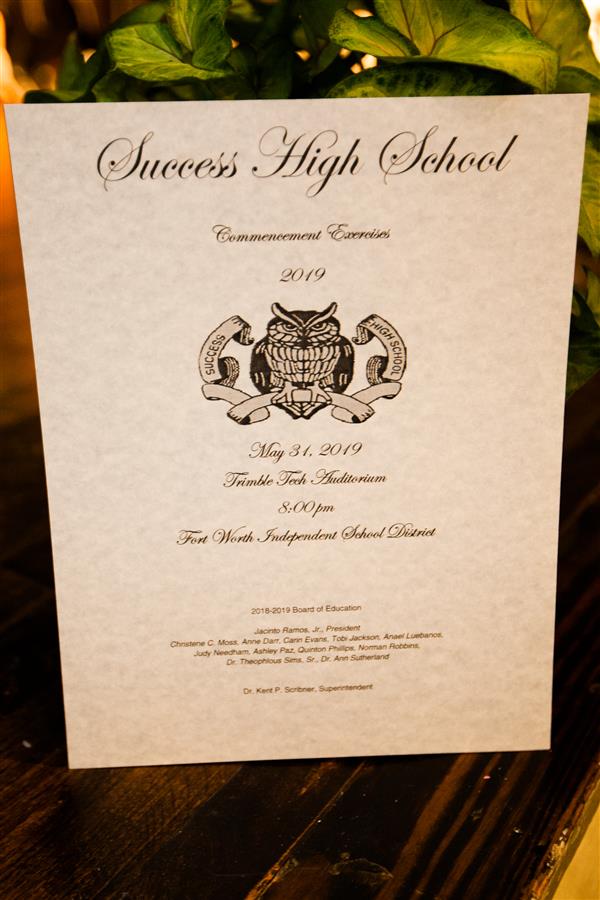 Success High School
Commencement Exercises
2019
SUCCESS
HIGH SCHOOL
May 31, 2019
Trimble Tech Auditorium
8:00 pm
Fort Worth Independent School District
2018-2019 Board of Education
Jacinto Ramos, Jr., President
Christene C. Moss, Anne Darr, Carin Evans, Tobi Jackson, Anael Luebanos,
Judy Needham, Ashley Paz, Quinton Phillips, Norman Robbins,
Dr. Theophlous Sims, Sr., Dr. Ann Sutherland
Dr. Kent P. Scribner, Superintendent